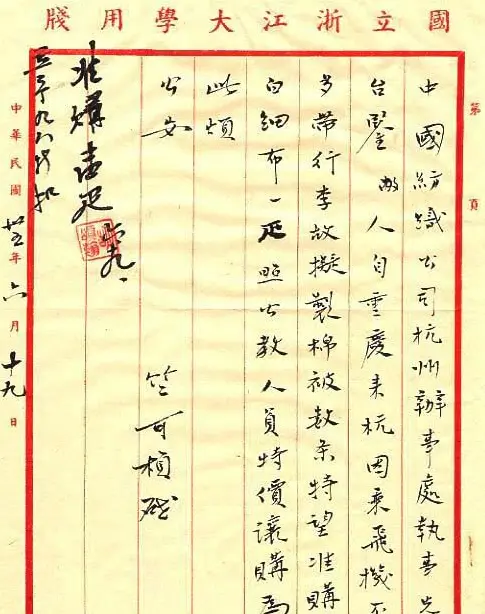 國立浙江大學用牋
第 頁
中國紡織公司杭州辦事處執事先
台鑒敝人自重慶来杭因乘飛機不
多帶行李故擬製棉被數条特望准購
白細布一疋照公教人員特價讓購為
此頌
公安
竺可楨啟
准購壹疋
六九一
中華民國卅五年六月十九日